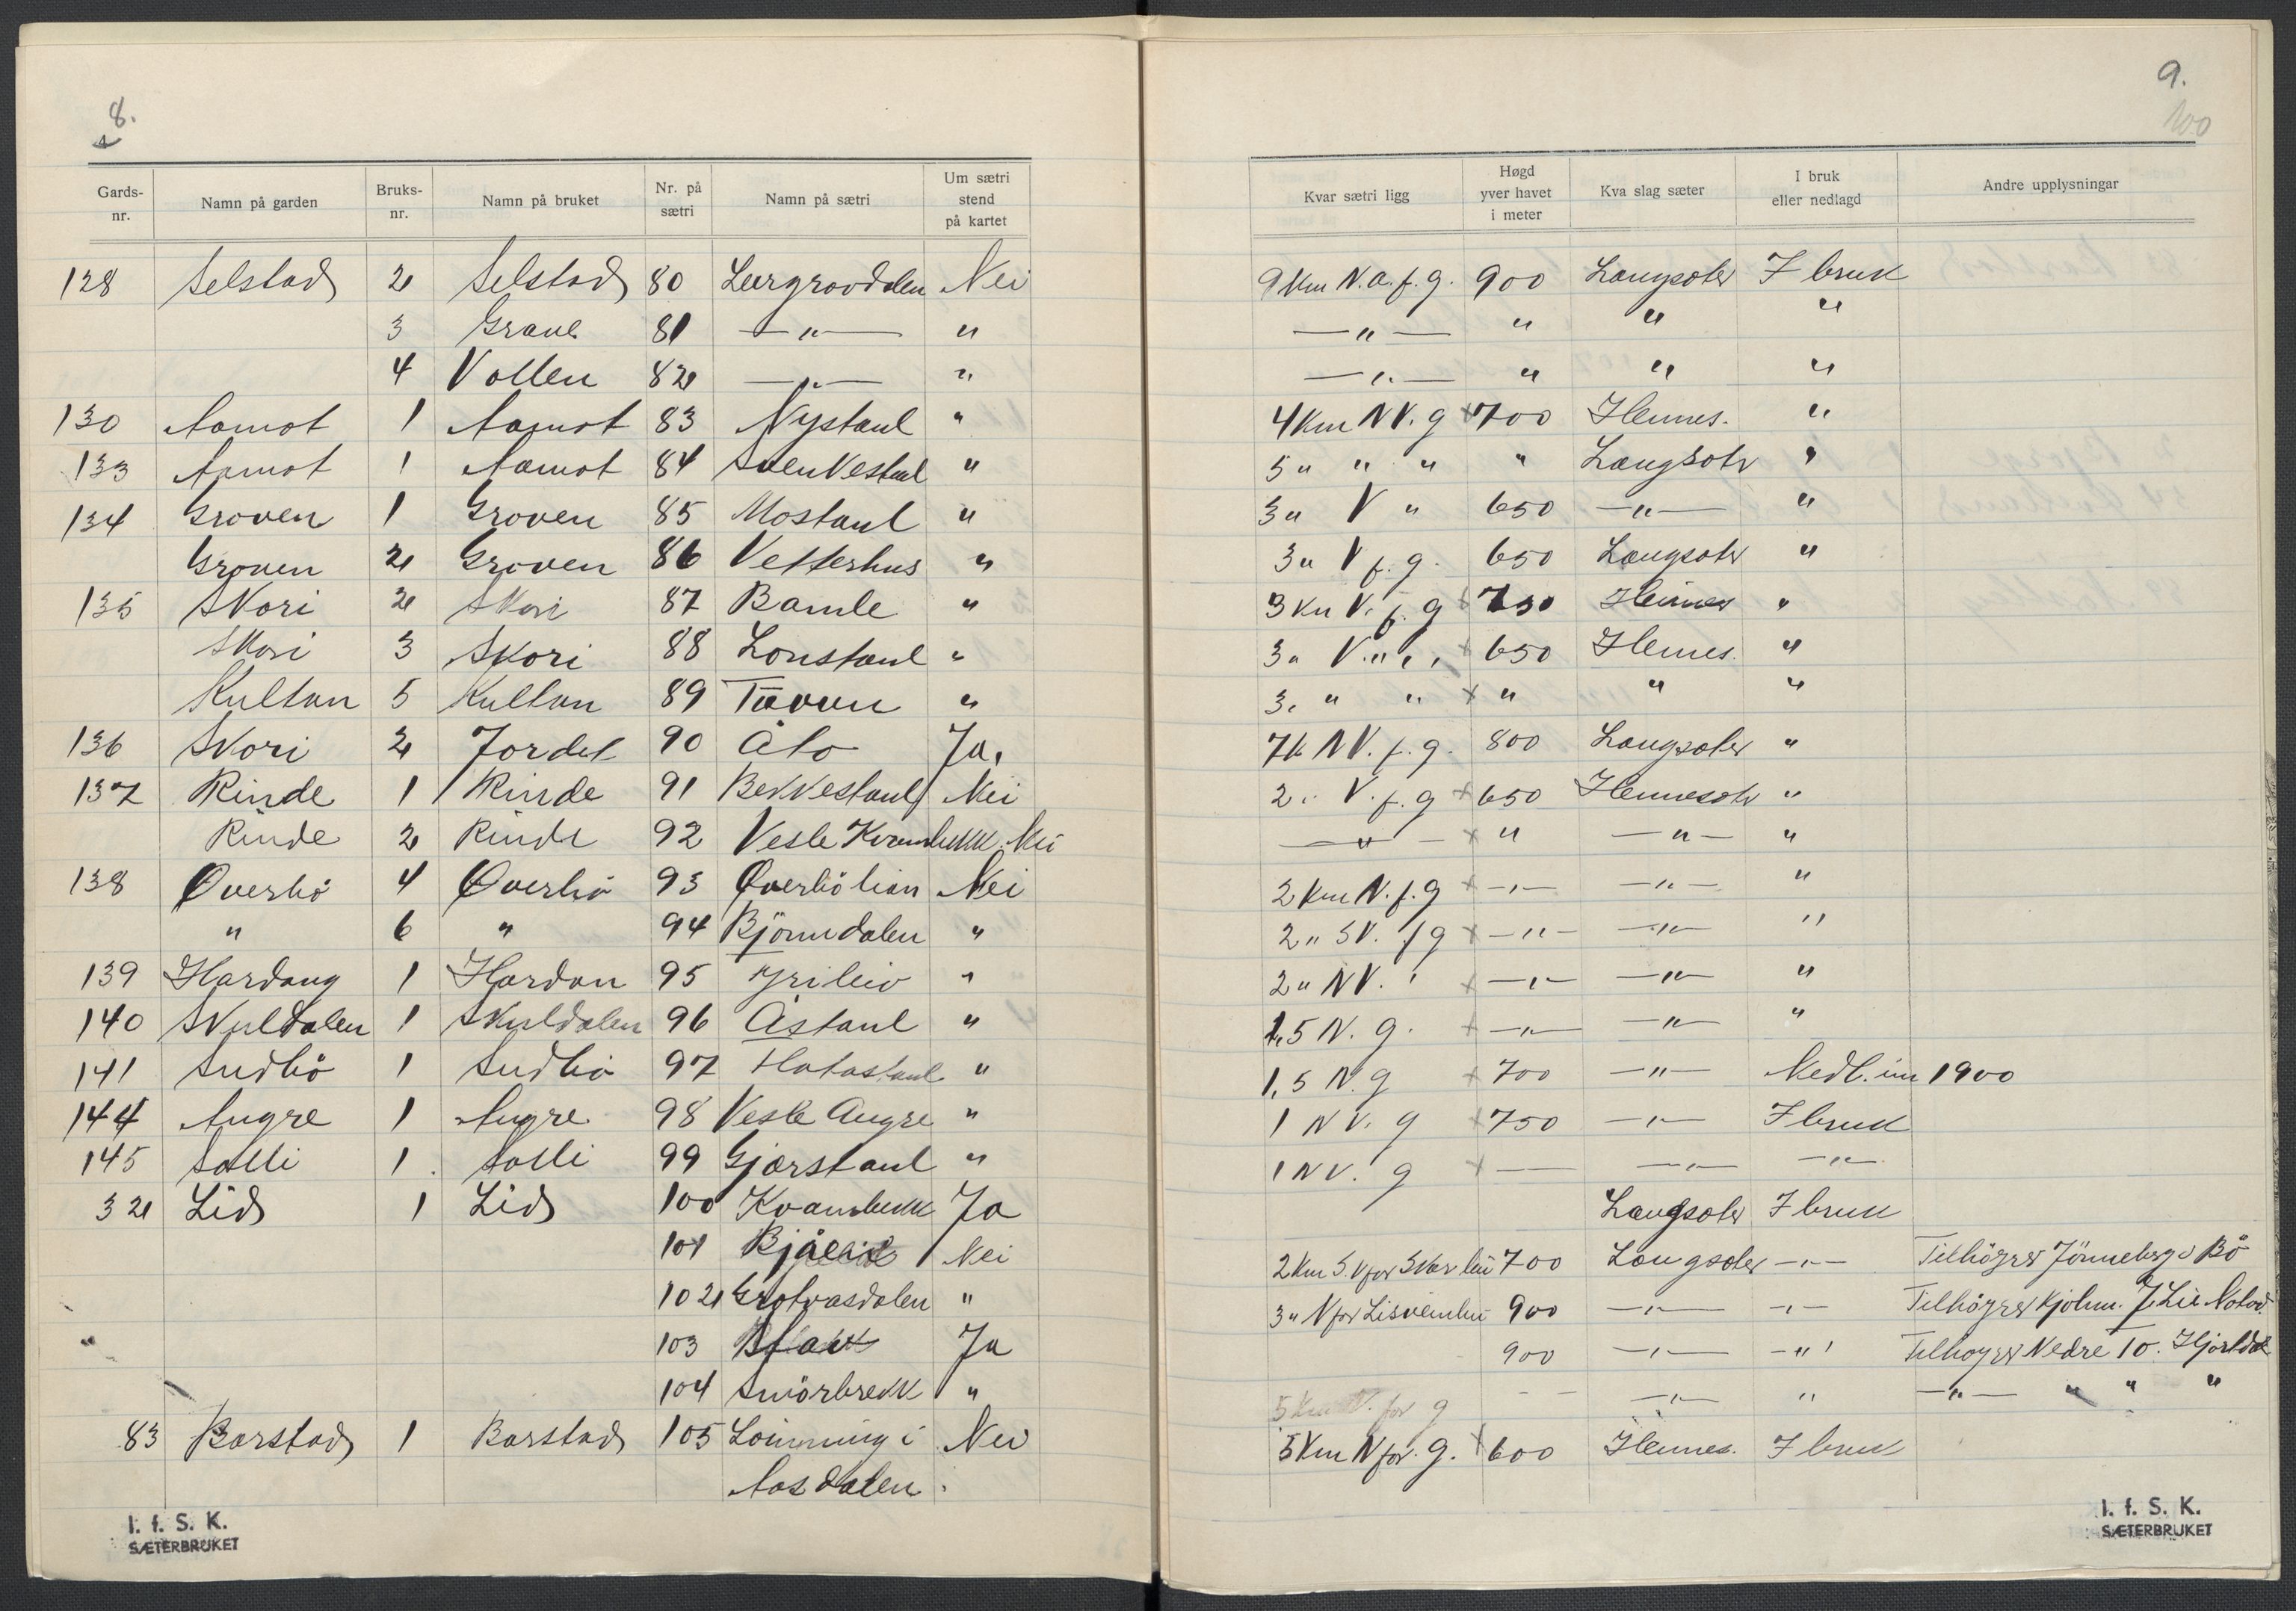 8.
Gards-nr. Namn på garden Bruks-nr. Namn på bruket Nr. på sætri Namn på sætri Um sætri stend på kartet
128 Selstad 2 Selstad 80 Leirgrovdalen Nei
3 Grave 81 —"— "
4 Vollen 82 —"— "
130 Aamot 1 Aamot 83 Nystaul "
133 Aamot 1 Aamot 84 "
134 Groven 1 Groven 85 Mostaul "
Groven 2 Groven 86 Vesterhus "
135 Skori 2 Skori 87 Bamle "
Skori 3 Skori 88 Lonstaul "
Kultan 5 Kultan 89 "
136 Skori 2 Jordet 90 Åto Ja.
137 Rinde 1 Rinde 91 Bekkestaul Nei
Rinde 2 Rinde 92 Vesle Kvambekk Nei
138 Överbö 4 Överbö 93 Överbölian Nei
" 6 " 94 Björnndalen "
139 Hardang 1 Hardan 95 "
140 Skuldalen 1 Skuldalen 96 Åstaul "
141 Sudbö 1 Sudbö 97 Hatastaul "
144 Augre 1 Augre 98 Vesle Augre "
145 Solli 1. Solli 99 Gjørstaul "
32 Lid 1 Lid 100 Kvambekk Ja
101 Nei
102 Grotvasdalen "
103 Ja
104 Smörbrekk "
83 Barstad 1 Barstad 105 Lönning i Nei
Aasdalen.
I. f. S. K.
SÆTERBRUKET
9.
100
Kvar sætri ligg Høgd yver havet i meter Kva slag sæter I bruk eller nedlagd Andre upplysningar
9 Km N.a.f.g. 900 Langsæter I bruk
—"— " " "
—"— " " "
4 Km NV. g x 700 Heimes. "
5 " " " " Langsætr "
3 " V " 650 —"— "
3 " V f. g. 650 Langsæter "
3 Km V. f. g 750 Heimes "
3 " V. " " x 650 Heimes. "
3 " " " x " " "
7 k NV. f. g. 800 Langsæter "
2 " V. f. g x 650 Heimesætr "
—"— x " —"— "
2 Km N. f. g x —"— —"— "
2 " SV. f g x —"— —"— "
2 " NV. " x —"— —"— "
1,5 N. g. x —"— —"— "
1,5 N. g x 700 —"— Nedl. um 1900
1 NV. g x 750 —"— I bruk
1 NV. g x — —"— —"—
Langsæter I bruk
2 Km S.V for 700 Langsæter —"— Tilhöyrer Jönneberg i Bö
3 " N for 900 —"— —"— Tilhöyrer Kjølm. J. Lie Notod.
900 —"— —"— Tilhöyrer Nedre 10. Hjartdal
5 Km N. for g — — —"— " —"— " " "
5 Km N for. g. x 600 Heimes. I bruk
I. f. S. K.
SÆTERBRUKET